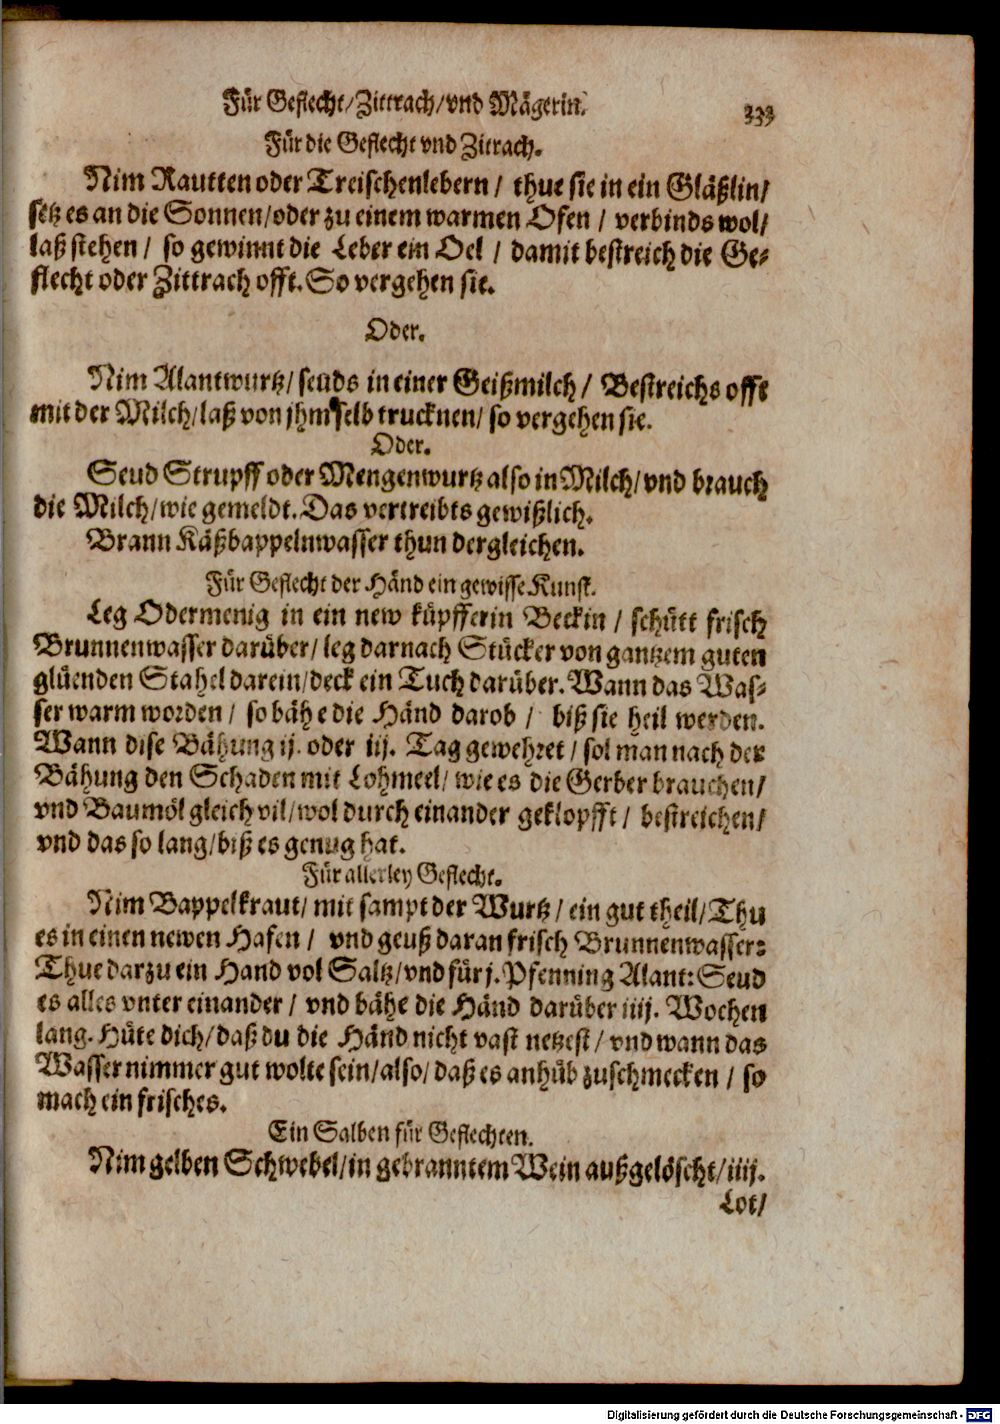 Für Geflecht/Zittrach/vnd Mägerin. 333
Für die Geflecht vnd Zitrach.
Nim Rautten oder Treischenlebern / thue sie in ein Gläßlin/
setz es an die Sonnen/oder zu einem warmen Ofen / verbinds wol/
laß stehen / so gewinnt die Leber ein Oel / damit bestreich die Ge-
flecht oder Zittrach offt. So vergehen sie.
Oder.
Nim Alantwurtz/ seuds in einer Geißmilch / Bestreichs offt
mit der Milch/laß von jhm selb trucknen/ so vergehen sie.
Oder.
Seud Strupff oder Mengenwurtz also in Milch/vnd brauch
die Milch/wie gemeldt. Das vertreibts gewißlich.
Brann Käßbappelnwasser thun dergleichen.
Für Geflecht der Händ ein gewisse Kunst.
Leg Odermenig in ein new küpfferin Beckin / schütt frisch
Brunnenwasser darüber/ leg darnach Stücker von gantzem guten
glüenden Stahel darein/deck ein Tuch darüber. Wann das Was-
ser warm worden / so bähe die Händ darob / biß sie heil werden.
Wann dise Bähung ij. oder iij. Tag gewehret / sol man nach der
Bähung den Schaden mit Lohmeel/ wie es die Gerber brauchen/
vnd Baumöl gleich vil/wol durch einander geklopfft / bestreichen/
vnd das so lang/biß es genug hat.
Für allerley Geflecht.
Nim Bappelkraut/ mit sampt der Wurtz / ein gut theil/Thu
es in einen newen Hafen / vnd geuß daran frisch Brunnenwasser:
Thue darzu ein Hand vol Saltz/vnd für j. Pfenning Alant: Seud
es alles vnter einander / vnd bähe die Händ darüber iiij. Wochen
lang. Hüte dich/daß du die Händ nicht vast netzest / vnd wann das
Wasser nimmer gut wolte sein/also/ daß es anhüb zuschmecken / so
mach ein frisches.
Ein Salben für Geflechten.
Nim gelben Schwebel/in gebranntem Wein außgelöscht/iiij.
Lot/
Digitalisierung gefördert durch die Deutsche Forschungsgemeinschaft - DFG